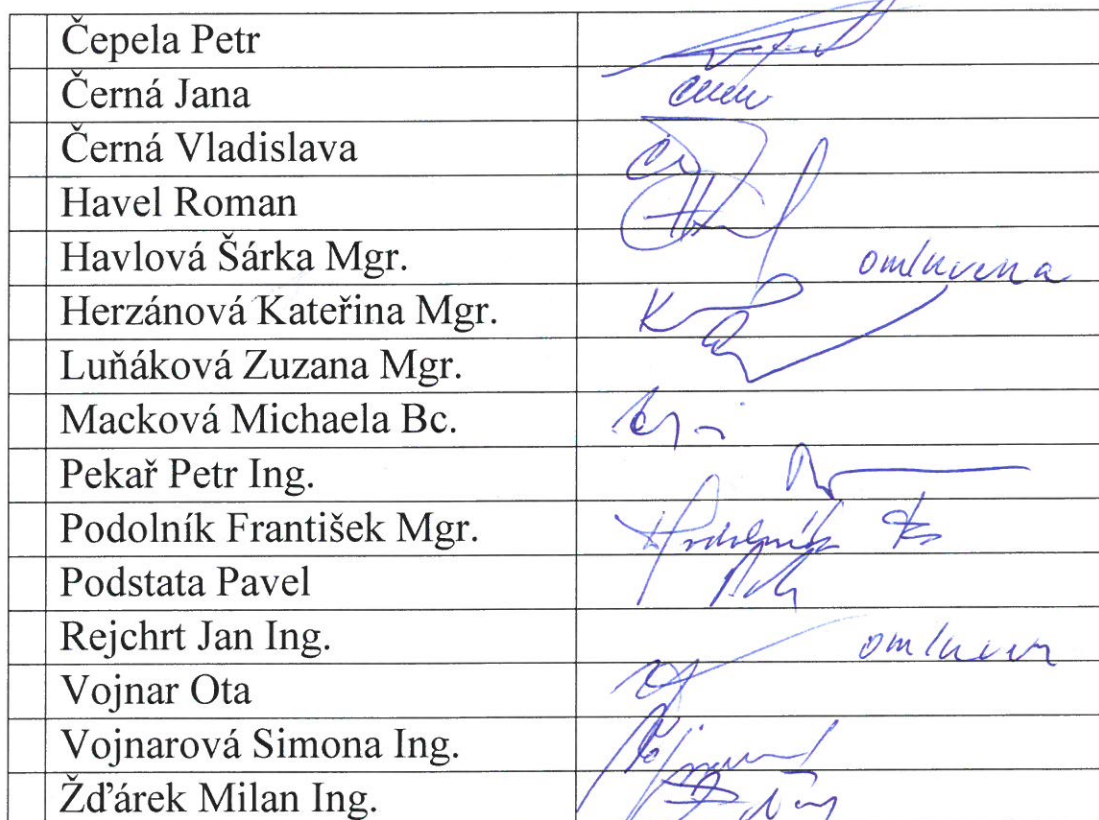 Čepela Petr
Černá Jana
Černá Vladislava
Havel Roman
Havlová Šárka Mgr. omluvena
Herzánová Kateřina Mgr.
Luňáková Zuzana Mgr.
Macková Michaela Bc.
Pekař Petr Ing.
Podolník František Mgr.
Podstata Pavel
Rejchrt Jan Ing. omluven
Vojnar Ota
Vojnarová Simona Ing.
Žďárek Milan Ing.